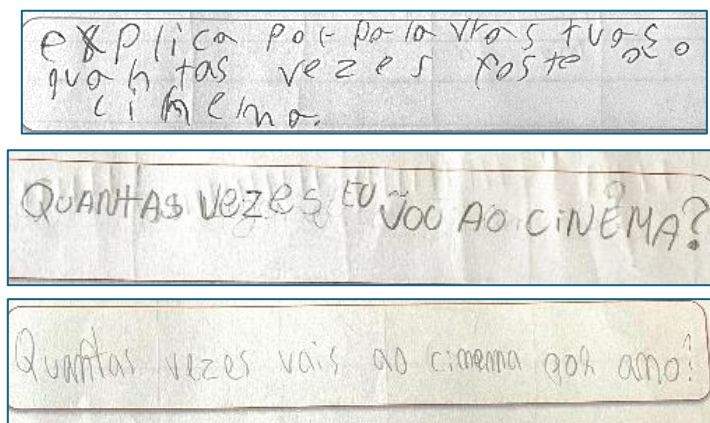 explica por palavras tuas o
quantas vezes foste ao
cinema.
QUANTAS VEZES EU VOU AO CINEMA?
Quantas vezes vais ao cimema por ano?